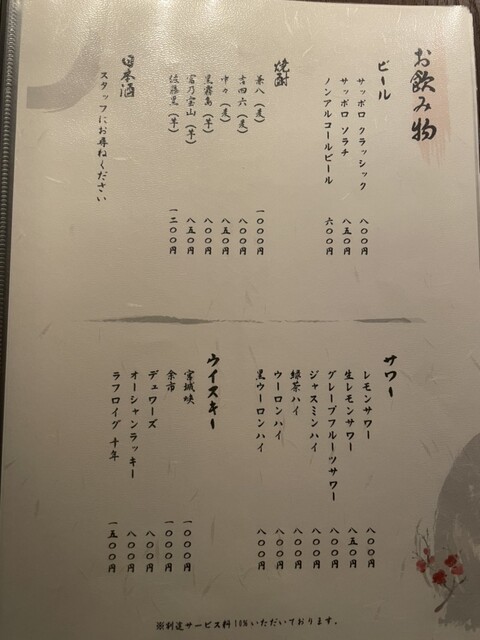 お飲み物
ビール
サッポロ クラッシック 八〇〇円
サッポロ ソラチ 八五〇円
ノンアルコールビール 六〇〇円
焼酎
兼八（麦） 一〇〇〇円
吉四六（麦） 八〇〇円
中々（麦） 八五〇円
黒霧島（芋） 八〇〇円
富乃宝山（芋） 八五〇円
佐藤黒（芋） 一二〇〇円
日本酒
スタッフにお尋ねください
サワー
レモンサワー 八〇〇円
生レモンサワー 八五〇円
グレープフルーツサワー 八〇〇円
ジャスミンハイ 八〇〇円
緑茶ハイ 八〇〇円
ウーロンハイ 八〇〇円
黒ウーロンハイ 八〇〇円
ウイスキー
宮城峡 一〇〇〇円
余市 一〇〇〇円
デュワーズ 八〇〇円
オーシャンラッキー 八〇〇円
ラフロイグ 十年 一五〇〇円
※別途サービス料10%いただいております。